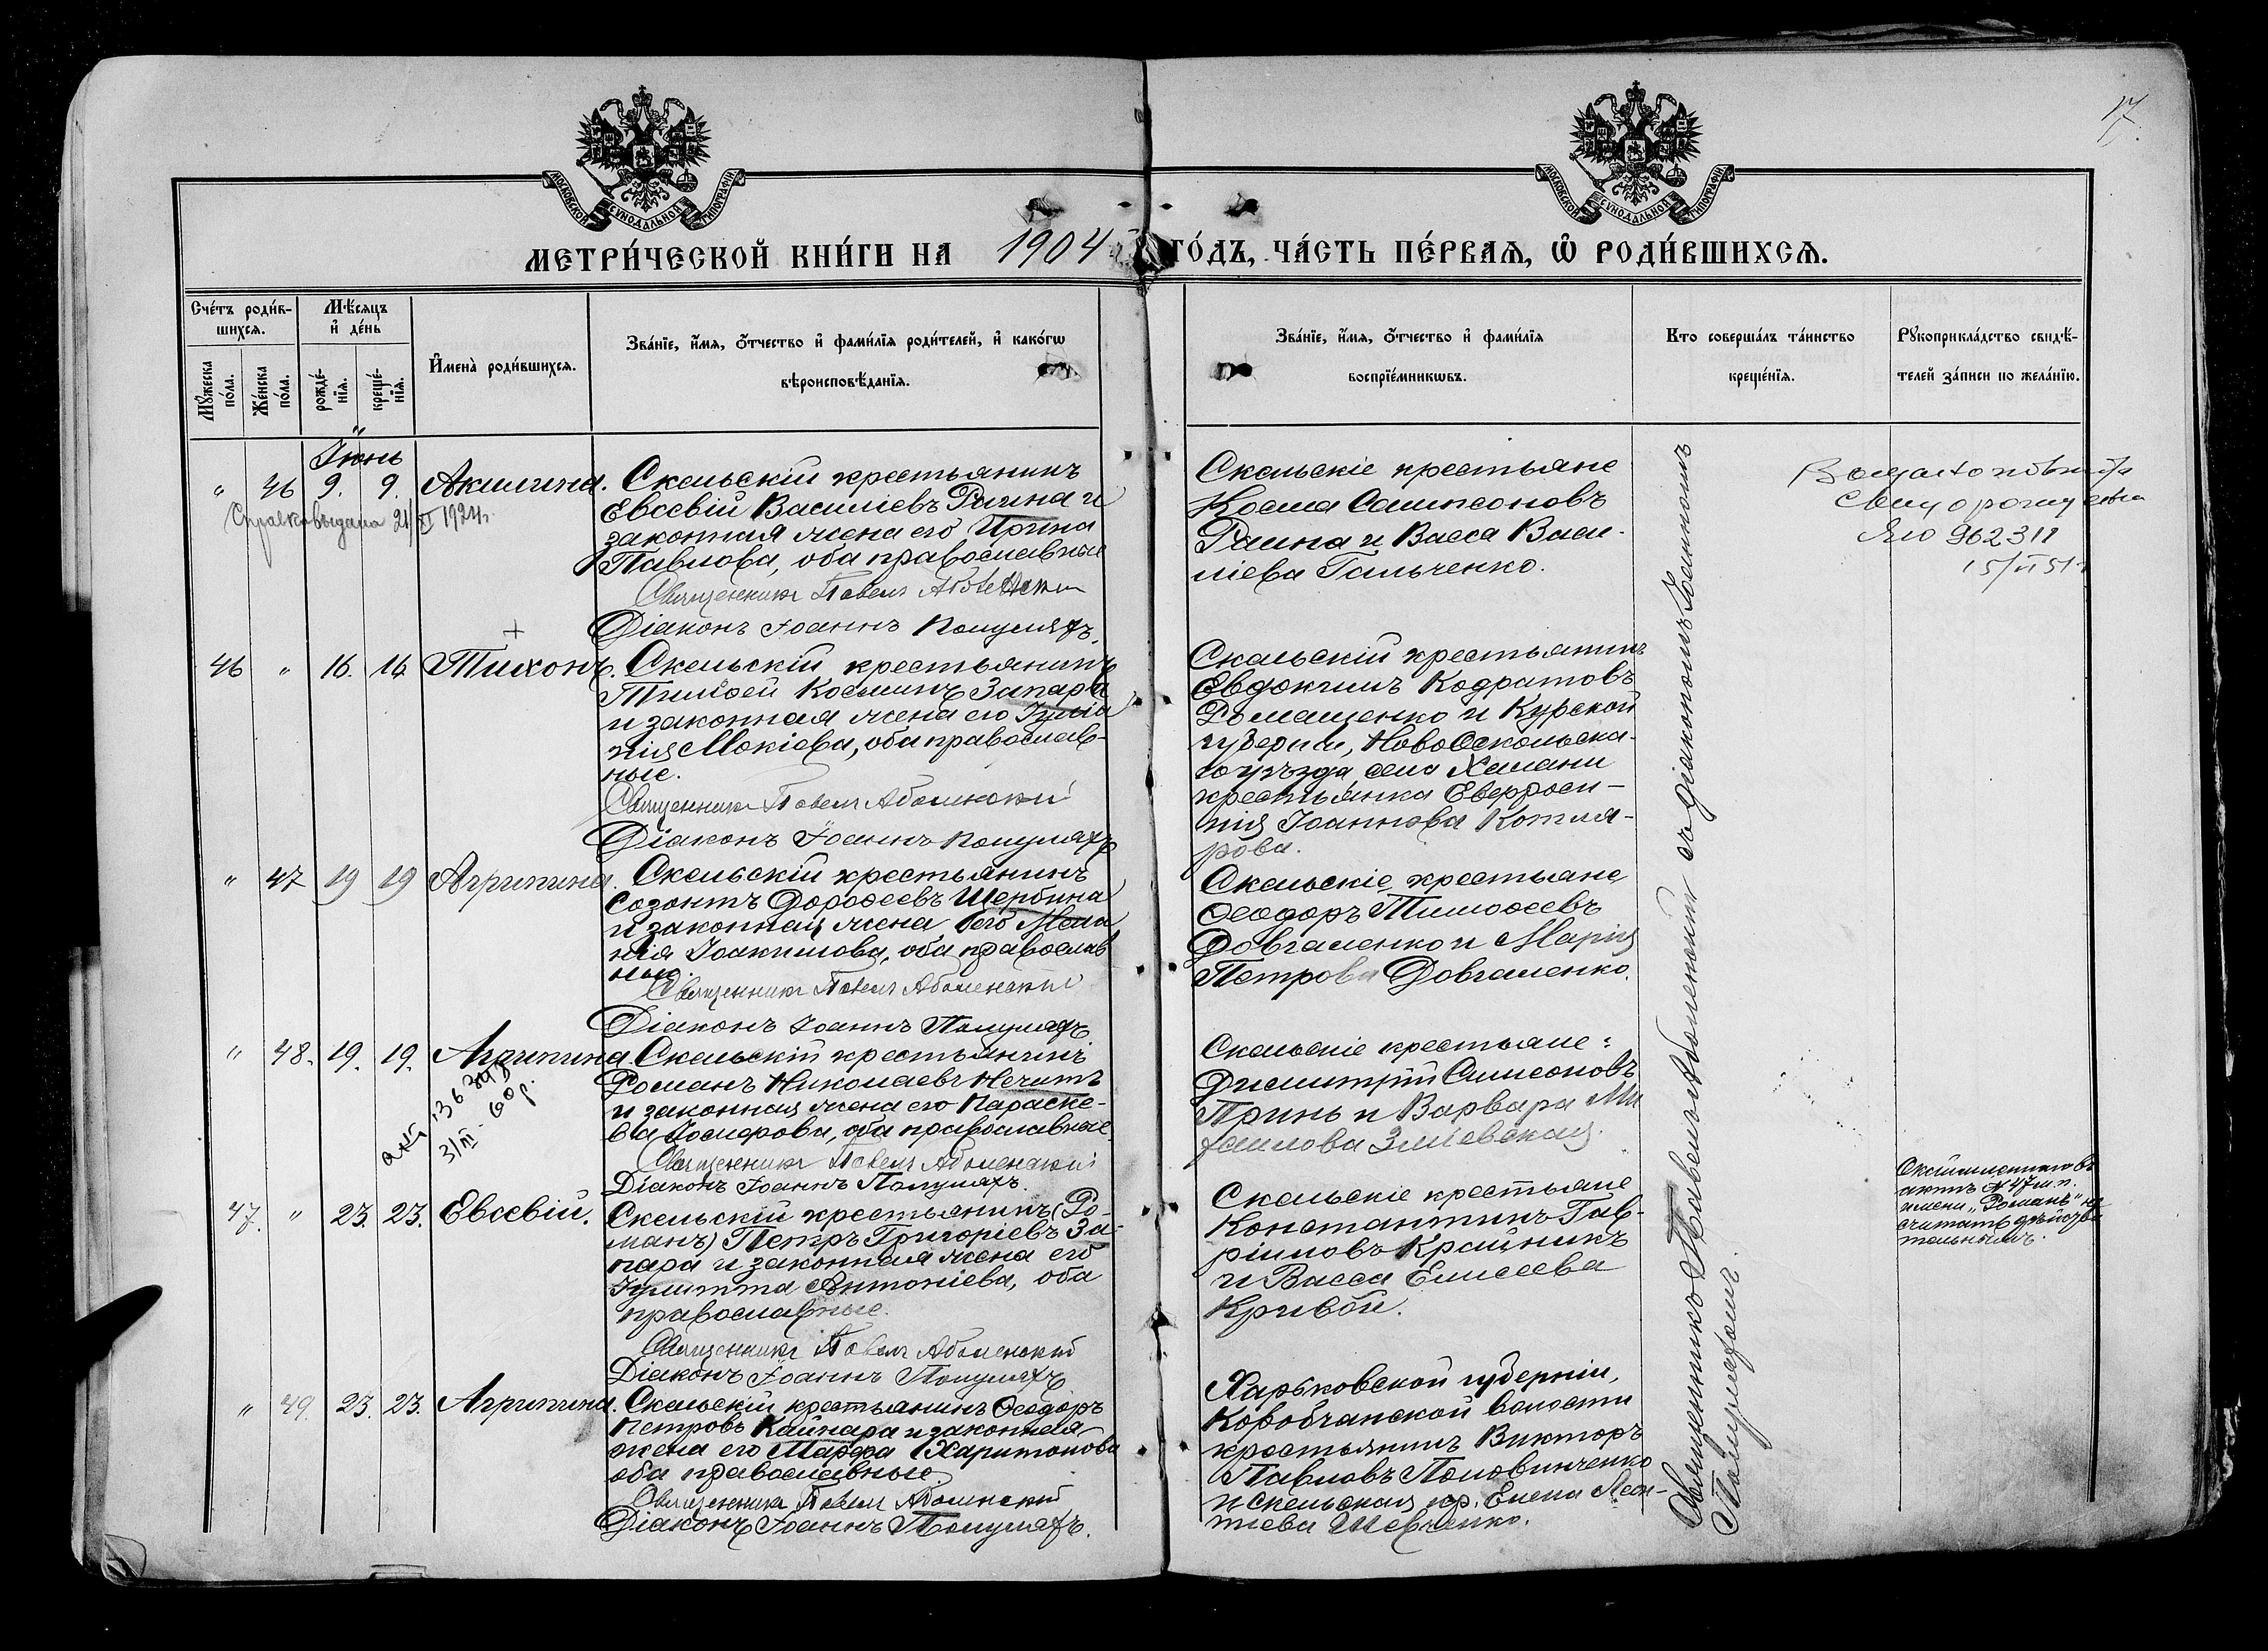 17.
МОСКОВСКОЙ СѴНОДАЛЬНОЙ ТИПОГРАФІИ
МОСКОВСКОЙ СѴНОДАЛЬНОЙ ТИПОГРАФІИ
МЕТРИ́ЧЕСКОЙ КНИ́ГИ НА 1904 ГО́ДЪ, ЧА́СТЬ ПЕ́РВАѦ, Ѽ РОДИ́ВШИХСѦ.
Сче́тъ роди́в-
шихсѧ.
Мѣ́сѧцъ
и҆ де́нь
Мꙋ́жеска
по́ла.
Же́нска
по́ла.
рожде́-
нїѧ.
креще́-
нїѧ.
И҆мена̀ роди́вшихсѧ.
Зва́нїе, и҆́мѧ, ѻ҆́тчество и҆ фами́лїѧ роди́телей, и҆ како́гѡ
вѣроисповѣ́данїѧ.
Зва́нїе, и҆́мѧ, ѻ҆́тчество и҆ фами́лїѧ
воспрїе́мникѡвъ.
Кто соверша́лъ та́инство
креще́нїѧ.
Рꙋкоприкла́дство свидѣ́-
телей за́писи по жела́нїю.
Іюнь
" 46 9. 9. Акилина.
Справка выдана 21/XI 1924г.
Скельскій крестьянинъ
Евсевій Василіевъ Раина и
законная жена его Ирина
Павлова, оба православные
Священникъ Павелъ
Діаконъ Іоаннъ Полуляхъ.
Скельскіе крестьяне
Косма Сампсоновъ
Раина и Васса Васи-
ліева Гальченко.
962311
46 " 16. 16 Тихонъ.
Скельскій крестьянинъ
Тимоѳей Косминъ Запара
и законная жена его Іулiа
нія Мокіева, оба православ-
ные.
Священникъ Павелъ Аболенскій
Діаконъ Іоаннъ Полуляхъ
Скельскій крестьянинъ
Евдокимъ Кодратовъ
Ромащенко и Курской
губерніи, НовоОскольска-
го уѣзда, села Халани
крестьянка Евфроси-
нія Іоаннова Котля-
рова.
" 47 19 19 Агрипина.
Скельскій крестьянинъ
Созонтъ Дороѳеевъ Щербина
и законная жена его Мела
нія Іоакимова, оба православ
ные.
Священникъ Павелъ Аболенскій
Діаконъ Іоаннъ Полуляхъ
Скельскіе крестьяне
Ѳеодоръ Тимоѳеевъ
Довгаленко и Марія
Петрова Довгаленко.
" 48. 19. 19. Агрипина.
31/III - 60 р.
Скельскій крестьянинъ
Романъ Николаевъ Нечитъ
и законная жена его Параске-
ва, оба православные.
Священникъ Павелъ Аболенскій
Діаконъ Іоаннъ Полуляхъ.
Скельскіе крестьяне:
Димитрій Симеоновъ
Принь и Варвара Ми
хаилова Зміевская.
47. " 23. 23. Евсевій.
Скельскій крестьянинъ (Ро-
манъ) Петръ Григоріевъ За-
пара и законная жена его
Іулитта Антоніева, оба
православные.
Священникъ Павелъ Аболенскій
Діаконъ Іоаннъ Полуляхъ
Скельскіе крестьяне
Константинъ Гав-
ріиловъ Крайникъ
и Васса Елисеева
Кривой.
въ
актѣ № 47 м. п.
имени „Романъ" не
считать дѣйстви
тельнымъ.
" 49. 23. 23. Агрипина.
Скельскій крестьянинъ Ѳеодоръ
Петровъ Кайнара и законная
жена его Марѳа Харитонова
оба православные.
Священникъ Павелъ Аболенскій
Діаконъ Іоаннъ Полуляхъ.
Харьковской губерніи,
Коробчанской волости
крестьянинъ Викторъ
Павловъ Половинченко
и скельская кр. Елена Леон-
тіева Шевченко.
Священникъ Павелъ Аболенскій съ діакономъ Іоанномъ
Полуляхомъ.